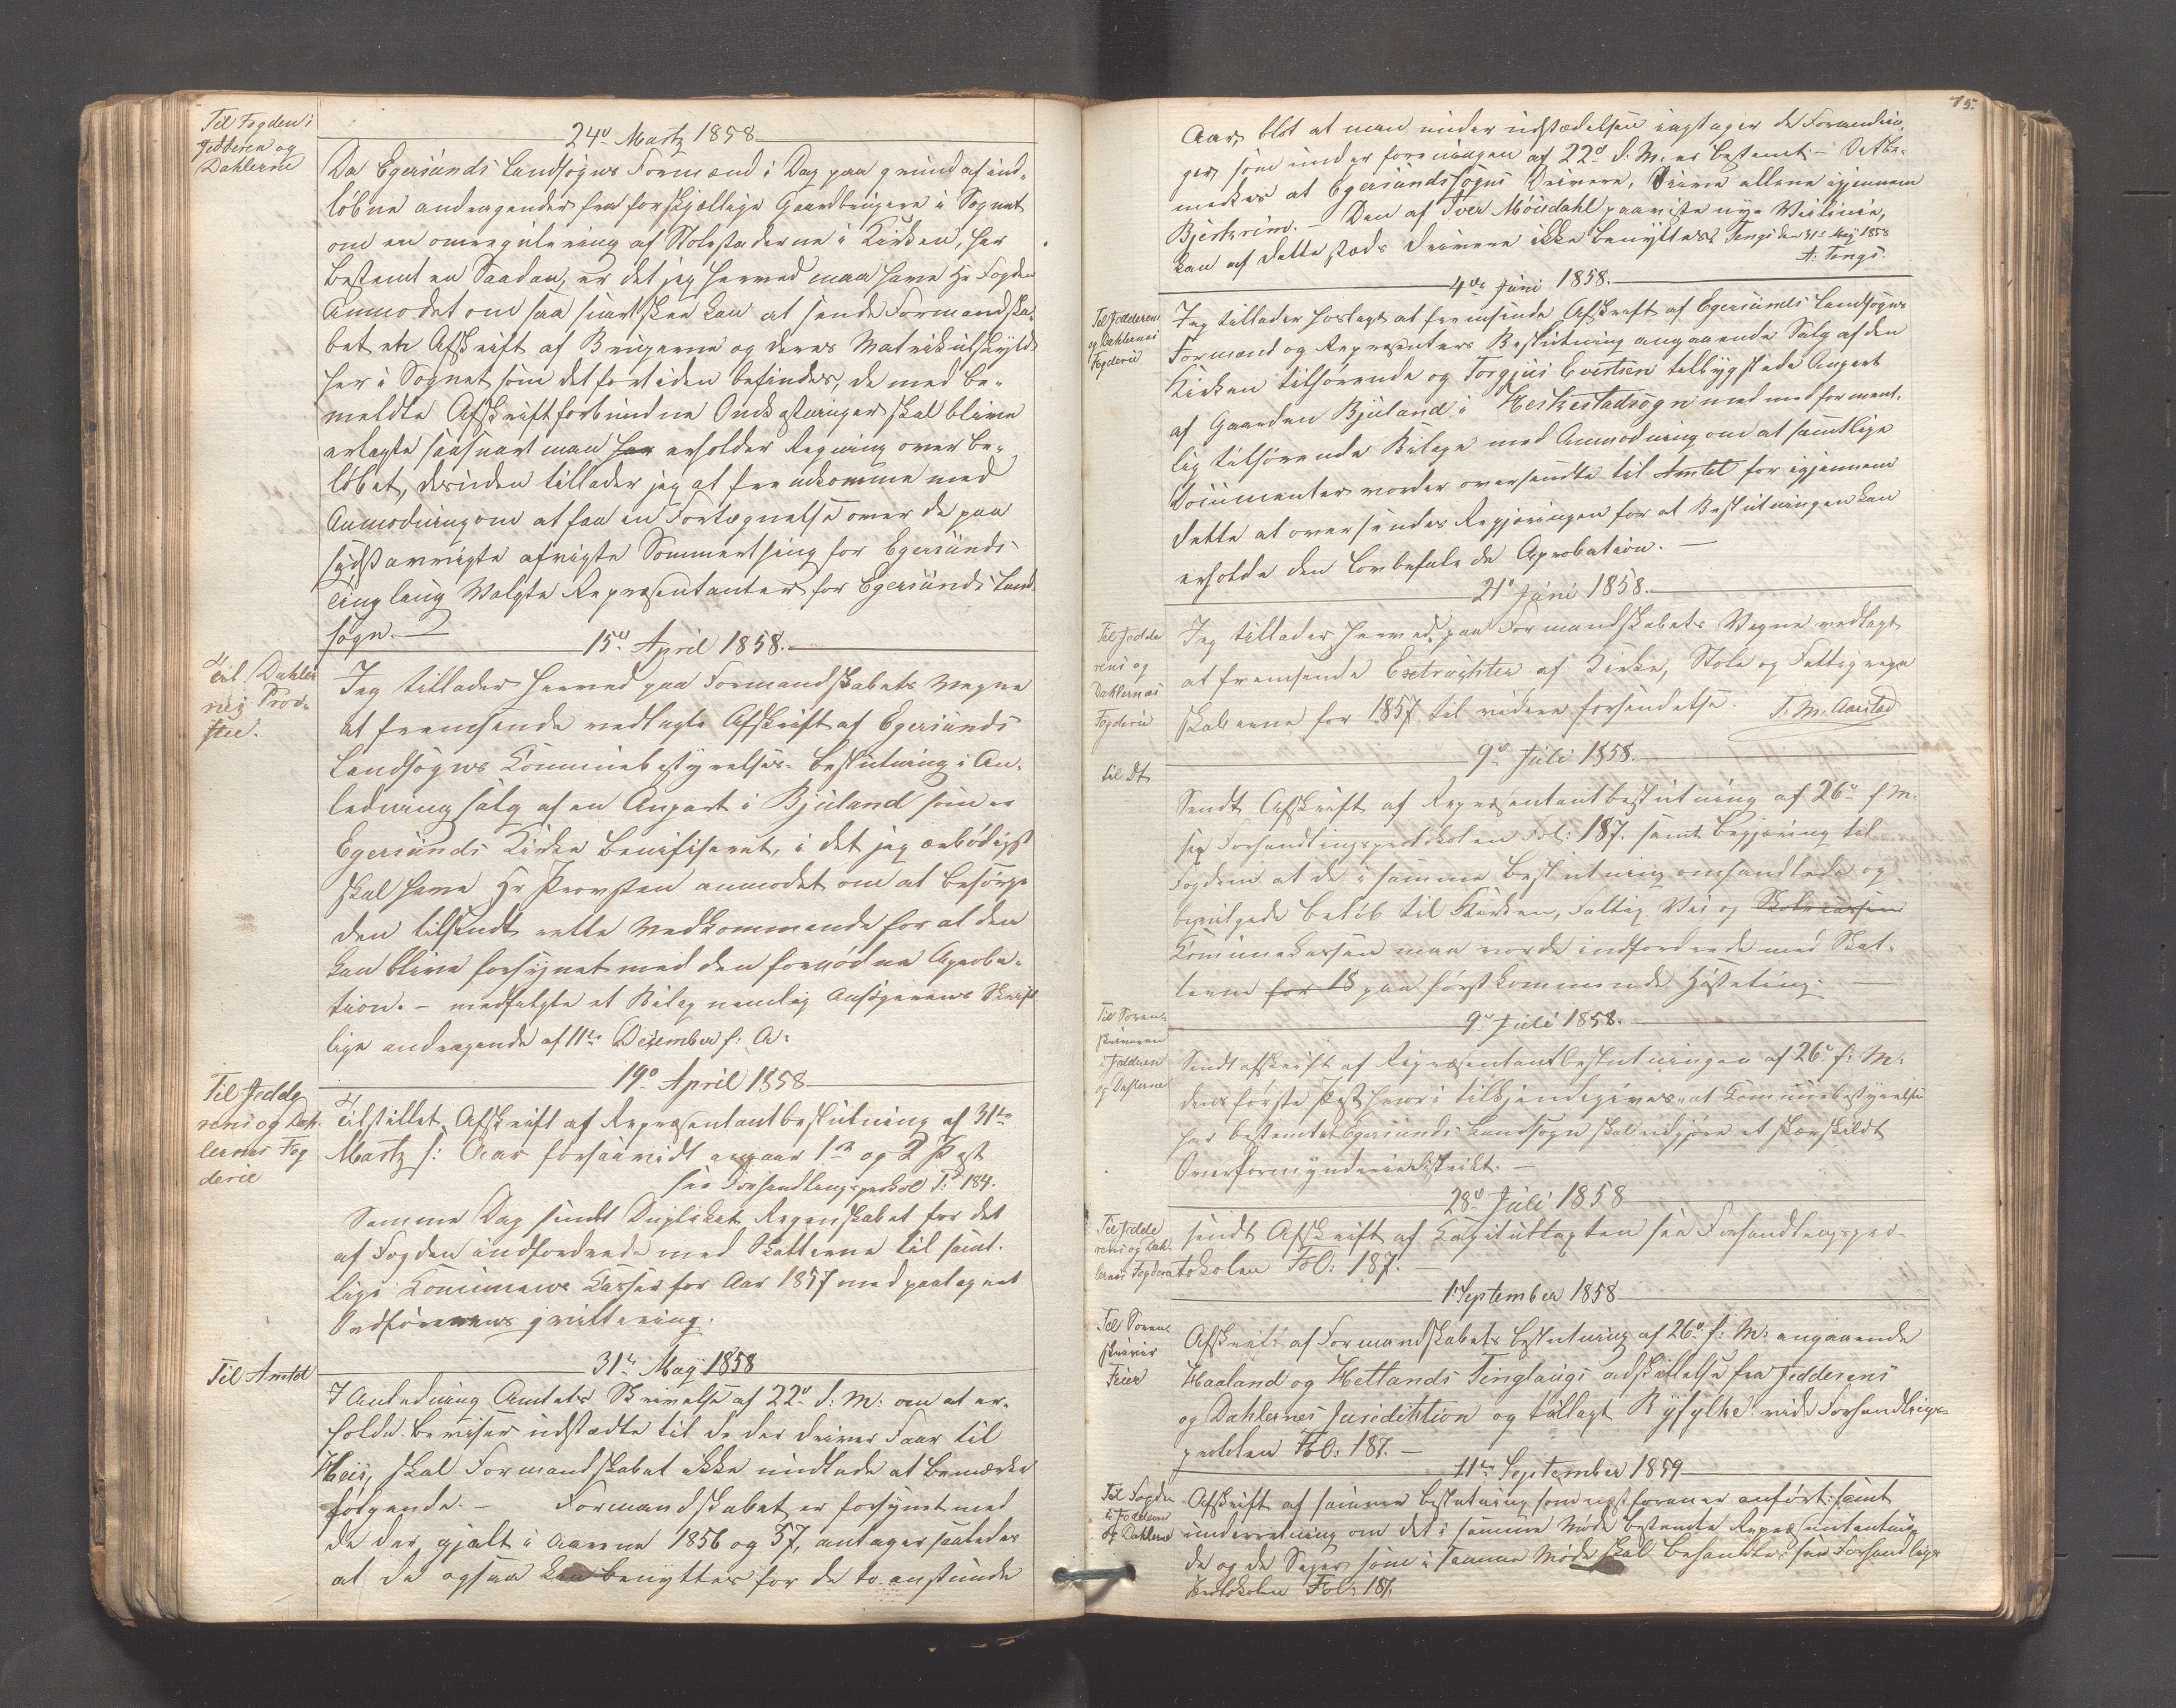 Til Fogden i
Jedderen og
Dahlerne
24de Martz 1858
Da Egersunds Landsogns Formænd i Dag paa grund af ind-
löbne andragender fra forskjællige Gaardbrugere i Sognet
om en omregulering af Stolestaderne i Kirken, har
bestemt en Saadan, er det jeg herved maa have Hr Fogden
Anmodet om saa snart skee kan at sende Formandska-
bet en Afskrift af Brugerne og deres Matrikulskyld
her i Sognet som det fortiden befindes, de med be-
meldte Afskrift forbundne Omkostninger skal blive
erlagte saasnart man har erholder Regning over be-
löbet, desuden tillader jeg at fremkomme med
Anmodning om at faa en Fortegnelse over de paa
sidstavvigte afvigte Sommerthing for Egersunds
Tinglaug Valgte Repræsentanter for Egersunds Land-
sogn. —
Til Dahler
nes Prov-
stie.
15de April 1858.
Jeg tillader herved paa Formandskabets Vegne
at fremsende vedlagte Afskrift af Egersunds
Landsogns Communebestyrelses Beslutning i An-
ledning salg af en Anpart i Bjuland som er
Egersunds Kirke benifiseret, i det jeg ærbödigst
skal have Hr Provsten anmodet om at besörge
den tilsendt rette Vedkommende for at den
kan blive forsynet med den fornödne Aproba-
tion. - medfulgte et Bilag nemlig Ansögerens Skrift
lige andragende af 11te December f: A:
Til Jedde
rens og Dah-
lernes Fog
derie
19de April 1858
Tilstillet Afskrift af Repræsentantbeslutning af 31te
Martz s: Aar forsaavidt angaar 1ste og 2 Post
see Forhandlingsprotokol F: 184.
Samme Dag sendt Duplikat Regnskabet for det
af Fogden indfordrede med Skatterne til samt-
lige Communens Kasser for Aar 1857 med paategnet
Ordförerens qvittering.
Til Amtet
31te May 1858
I Anledning Amtets Skrivelse af 22de d: M: om at er-
holde Beviser udstædte til de der driver Faar til
Heis, skal Formandskabet ikke undlade at bemærke
fölgende. - Formandskabet er forsynet med
de der gjalt i Aarene 1856 og 57, antager saaledes
at de ogsaa kan benyttes for de to anstunde
75.
Aar, blot at man under udstædelsen iagtager de Forandrin-
ger som under foreningen af 22de d. M. er bestemt - Det be-
mærkes at Egersunds sogns Drivere, Drive allene igjennem
Bjerkrim. - Den af Iver Möisdahl paaviste nye Veilinie,
kan af dette steds Drivere ikke benyttes. Tengs den 31te May 1858
A. Tengs.
4de Juni 1858.
Til Jedderens
og Dahlernes
Fogderie
Jeg tillader hoslagt at fremsende Afskrift af Egersunds Landsogns
Formænd og Repræsenters Beslutning angaaende Salg af den
Kirken tilhörende og Torgjus Evertsen tilbygslede Anpart
af Gaarden Bjuland i Heskestadsogn med med forment-
lig tilhörende Bilage med Anmodning om at samtlige
Documenter vorder oversendte til Amtet for igjennem
dette at oversendes Regjeringen for at Beslutningen kan
erholde den lovbefalede Aprobation. —
21de Juni 1858.
Til Jedde
rens og
Dahlernes
Fogderie
Jeg tillader herved paa Formandskabets Vegne vedlagt
at fremsende Extrachter af Kirke, Skole og Fattigregn
skaberne for 1857 til videre forsendelse. T. M. Aarstad
9de Juli 1858.
til Dt
Sendt Afskrift af Repræsentantbeslutning af 26de f. M.
see Forhandlingsprotokolen Fol: 187. samt begjæring til
Fogden at de i samme beslutning omhandlede og
bevilgede belöb til Kirken, Fattig Vei og Skolecassen
Communekassen maa vorde indfordrede med Skat-
terne for 18 paa förstkommende Hösteting. —
Til Soren-
skriveren
i Jedderen
og Dahlerne
9de Juli 1858.
Sendt afskrift af Repræsentantbeslutningen af 26de f: M:
dens förste Post hvori tilkjendegives at Communebestyrelsen
har bestemt at Egersunds Landsogn skal udgjöre et særskildt
Overformynderie Distrikt. —
28de Juli 1858
Til Jedde
rens og Dah-
lernes Fogderie
sendt Afskrift af Kapitultaxten see Forhandlingspro-
tokolen Fol: 187. —
1 September 1858
Til Soren-
skriver
Feier
Afskrift af Formandskabets beslutning af 26de f: M: angaaende
Haaland og Hetlands Tinglaugs adskillelse fra Jedderens
og Dahlernes Jurisdiktion og tillagt Ryfylke vide Forhandlings-
protokolen Fol: 187. —
11te September 1859
Til Fogden
i Jedderen
og Dahlerne
Afskrift af samme beslutning som næst foran er anfört: samt
underretning om det i samme Möde bestemte Repræsentantmöde
de og de Sager som i samme Möde skal behandles see Forhandlings
Protokolen Fol: 187.